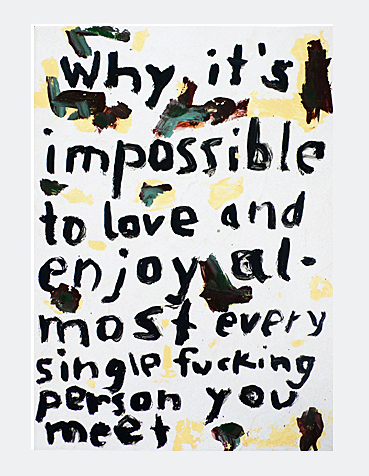 why, it's
impossible
to love and
enjoy al-
most every
single fucking
person you
meet